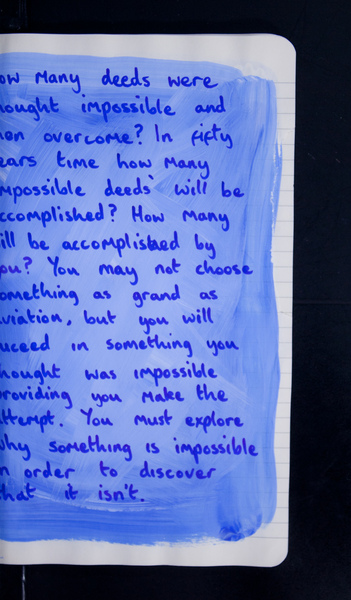 ow many deeds were
hought impossible and
hen overcome? In fifty
ears time how many
mpossible deeds will be
ccomplished? How many
ill be accomplished by
ou? You may not choose
omething as grand as
viation, but you will
uceed in something you
hought was impossible
roviding you make the
ttempt. You must explore
why something is impossible
n order to discover
that it isn't.